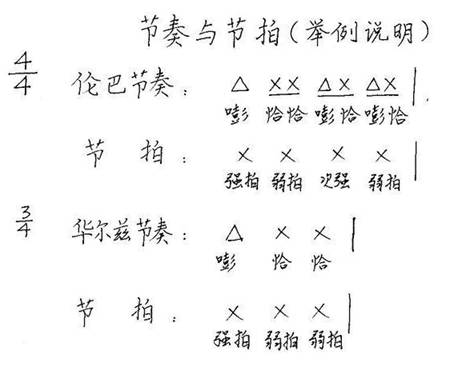 节奏与节拍(举例说明)
4/4 伦巴节奏: △ ×× △× △× |
嘭 恰恰 嘭恰 嘭恰
节 拍: × × × × |
强拍 弱拍 次强 弱拍
3/4 华尔兹节奏: △ × × |
嘭 恰 恰
节 拍: × × × |
强拍 弱拍 弱拍